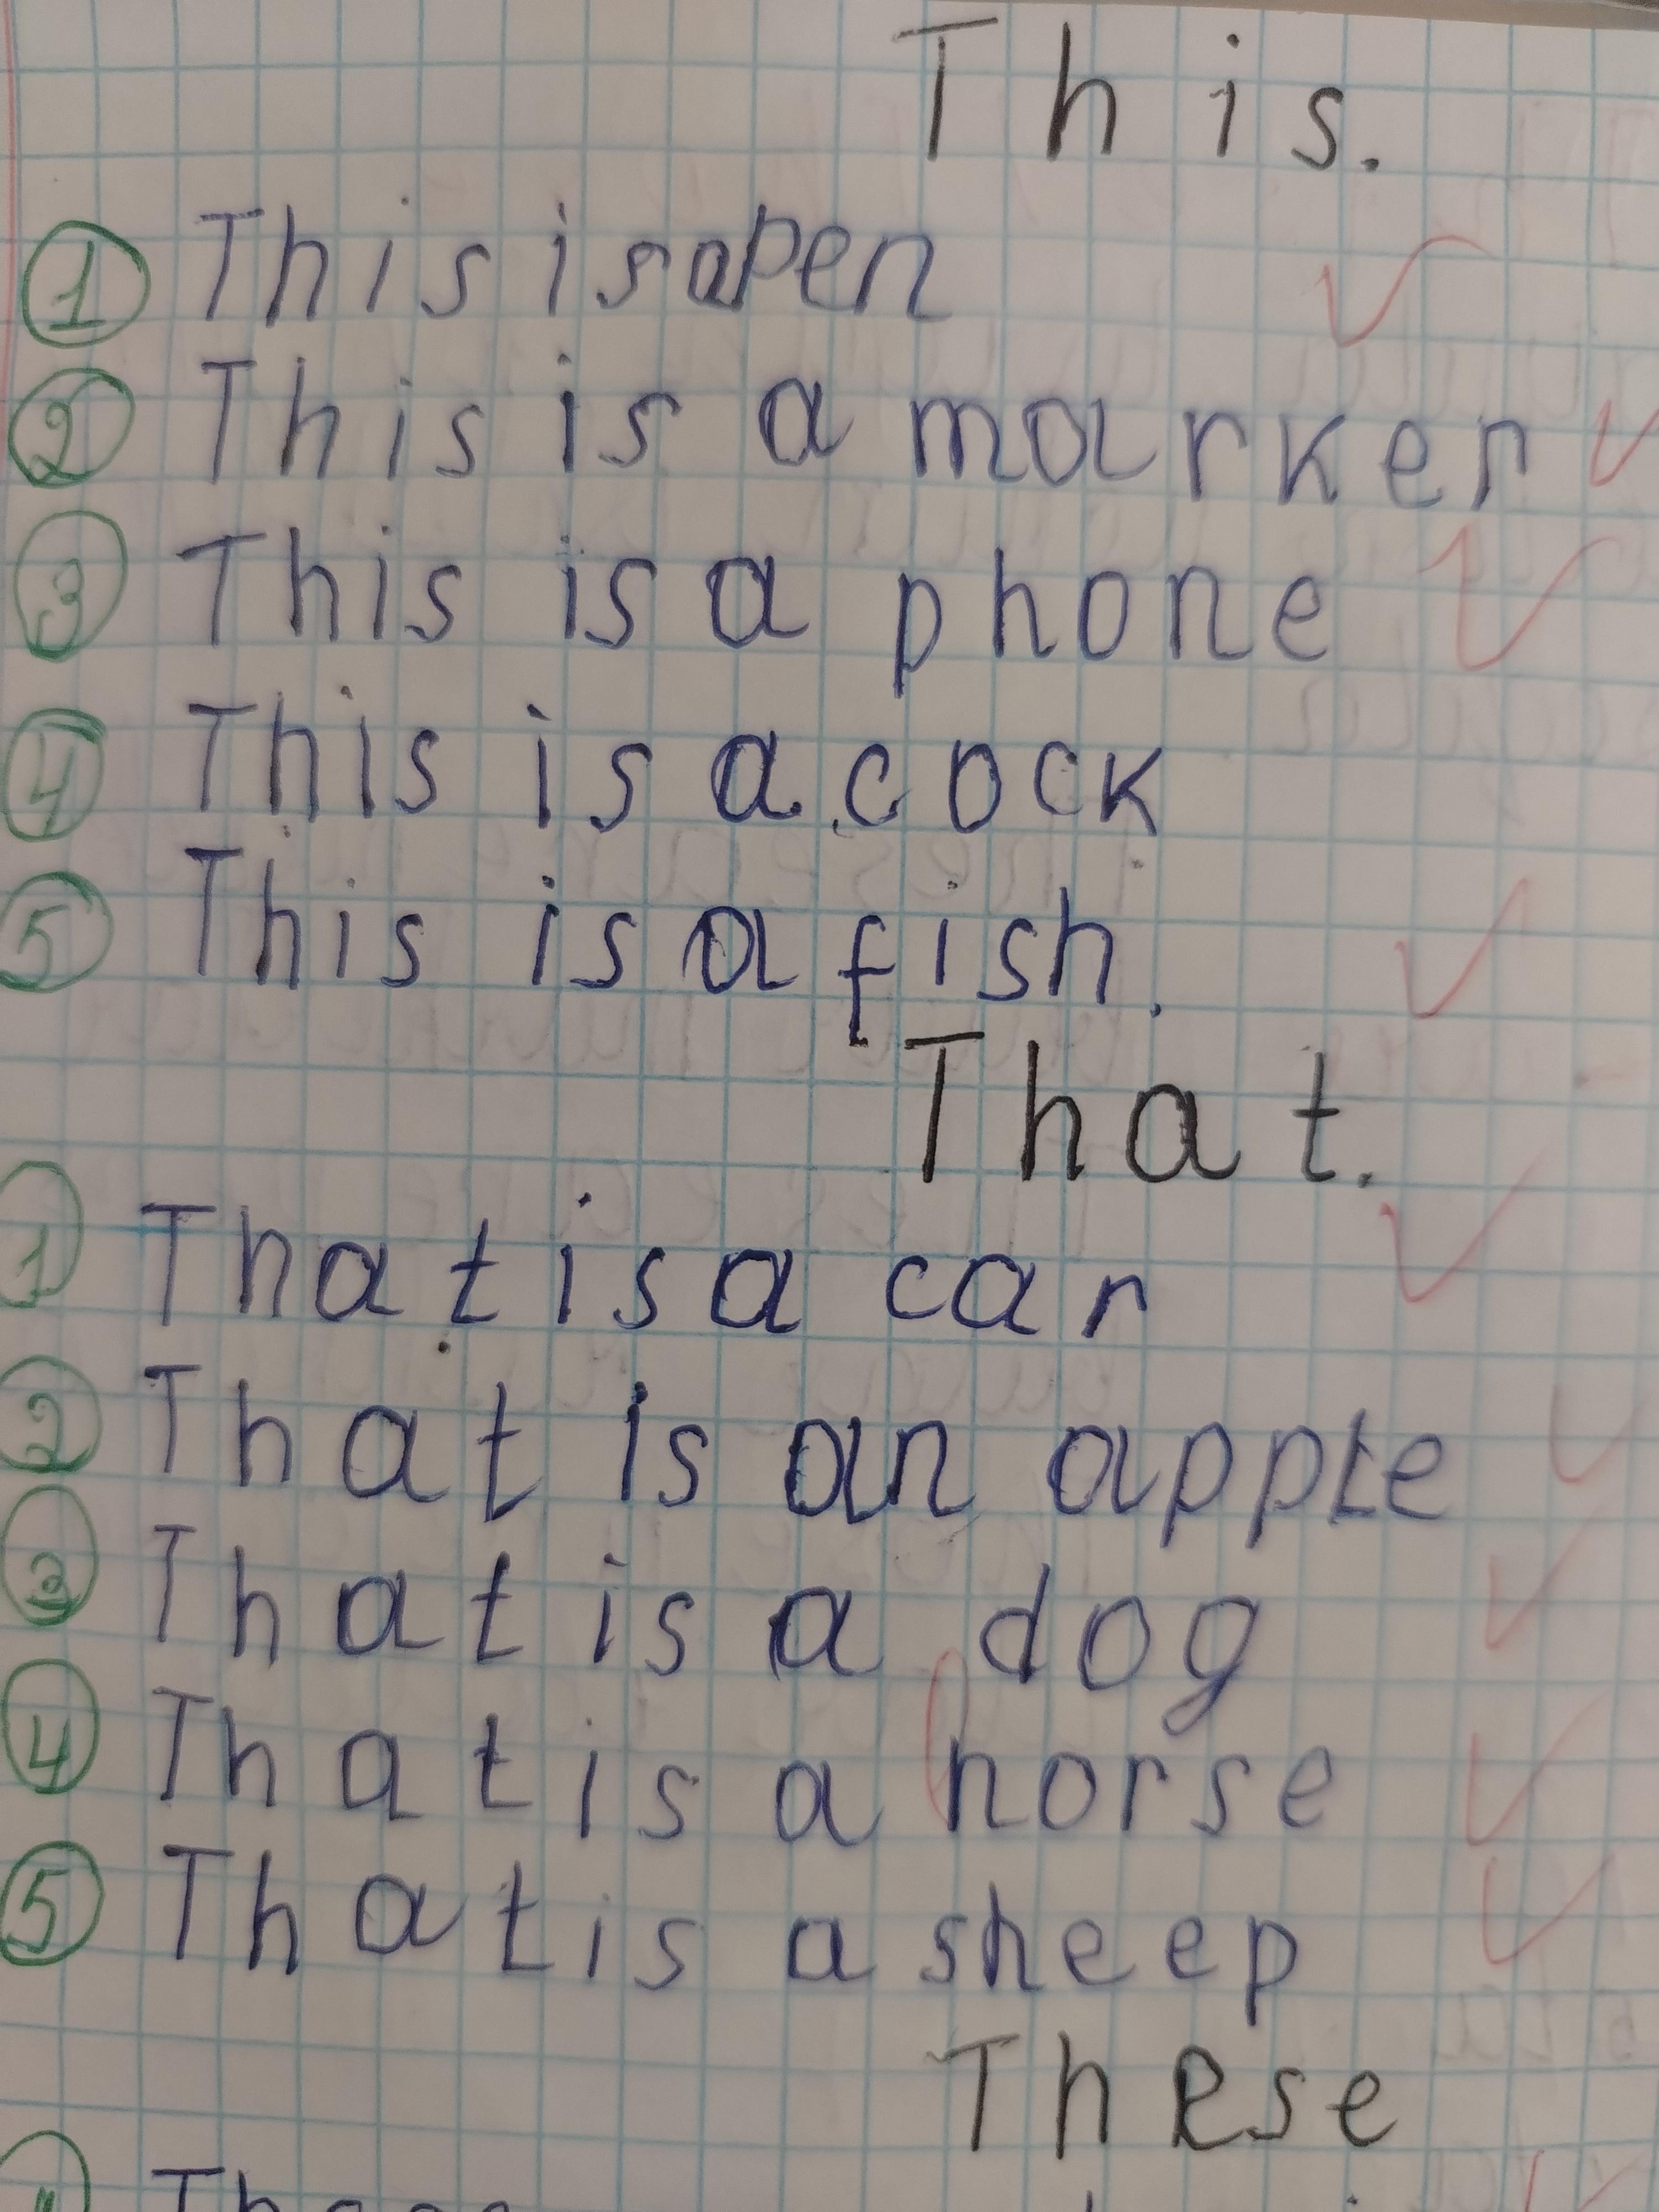 This.
1 This is a pen
2 This is a marker
3 This is a phone
4 This is a cock
5 This is a fish.
That.
1 That is a car
2 That is an apple
3 That is a dog
4 That is a horse
5 That is a sheep
These